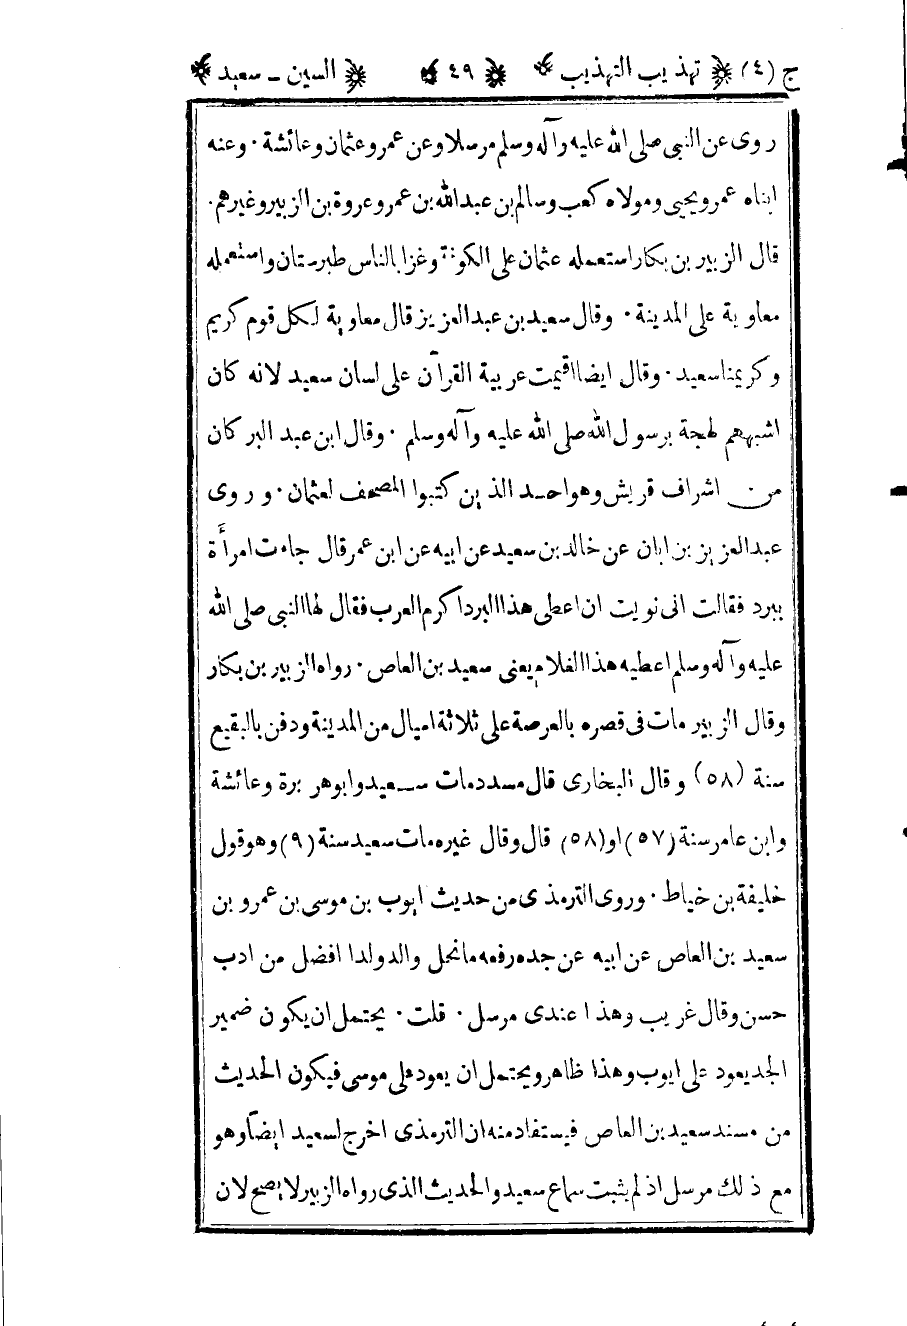 ج (٤) تهذيب التهذيب ٤٩ السين - سعيد
روى عن النبى صلى الله عليه وآله وسلم مرسلا وعن عمر وعثمان وعائشة ٠ وعنه
ابناه عمرو يحيى ومولاه كعب وسالم بن عبد الله بن عمر وعروة بن الزبير وغيرهم ٠
قال الزبير بن بكار استعمله عثمان على الكوفة وغزا بالناس طبرستان واستعمله
معاوية على المدينة ٠ وقال سعيد بن عبد العزيز قال معاوية لكل قوم كريم
وكريمنا سعيد ٠ وقال ايضا اقيمت عربية القرآن على لسان سعيد لانه كان
اشبههم لهجة برسول الله صلى الله عليه وآله وسلم ٠ وقال ابن عبد البر كان
من اشراف قريش وهو احد الذين كتبوا المصحف لعثمان ٠ وروى
عبد العزيز بن ابان عن خالد بن سعيد عن ابيه عن ابن عمر قال جاءت امرأة
ببرد فقالت انى نويت ان اعطى هذا البرد اكرم العرب فقال لها النبى صلى الله
عليه وآله وسلم اعطيه هذا الغلام يعنى سعيد بن العاص ٠ رواه الزبير بن بكار
وقال الزبير مات فى قصره بالعرصة على ثلاثة اميال من المدينة ودفن بالبقيع
سنة (٥٨) وقال البخارى قال مسدد مات سعيد وابو هريرة وعائشة
وابن عامر سنة (٥٧) او (٥٨) قال وقال غيره مات سعيد سنة (٩) وهو قول
خليفة بن خياط ٠ وروى الترمذى من حديث ايوب بن موسى بن عمرو بن
سعيد بن العاص عن ابيه عن جده رفعه ما نحل والد ولدا افضل من ادب
حسن وقال غريب وهذا عندى مرسل ٠ قلت ٠ يحتمل ان يكون ضمير
الجد يعود على ايوب وهذا ظاهر ويحتمل ان يعود على موسى فيكون الحديث
من مسند سعيد بن العاص فيستفاد منه ان الترمذى اخرج لسعيد ايضاً وهو
مع ذلك مرسل اذ لم يثبت سماع سعيد والحديث الذى رواه الزبير لا يصح لان